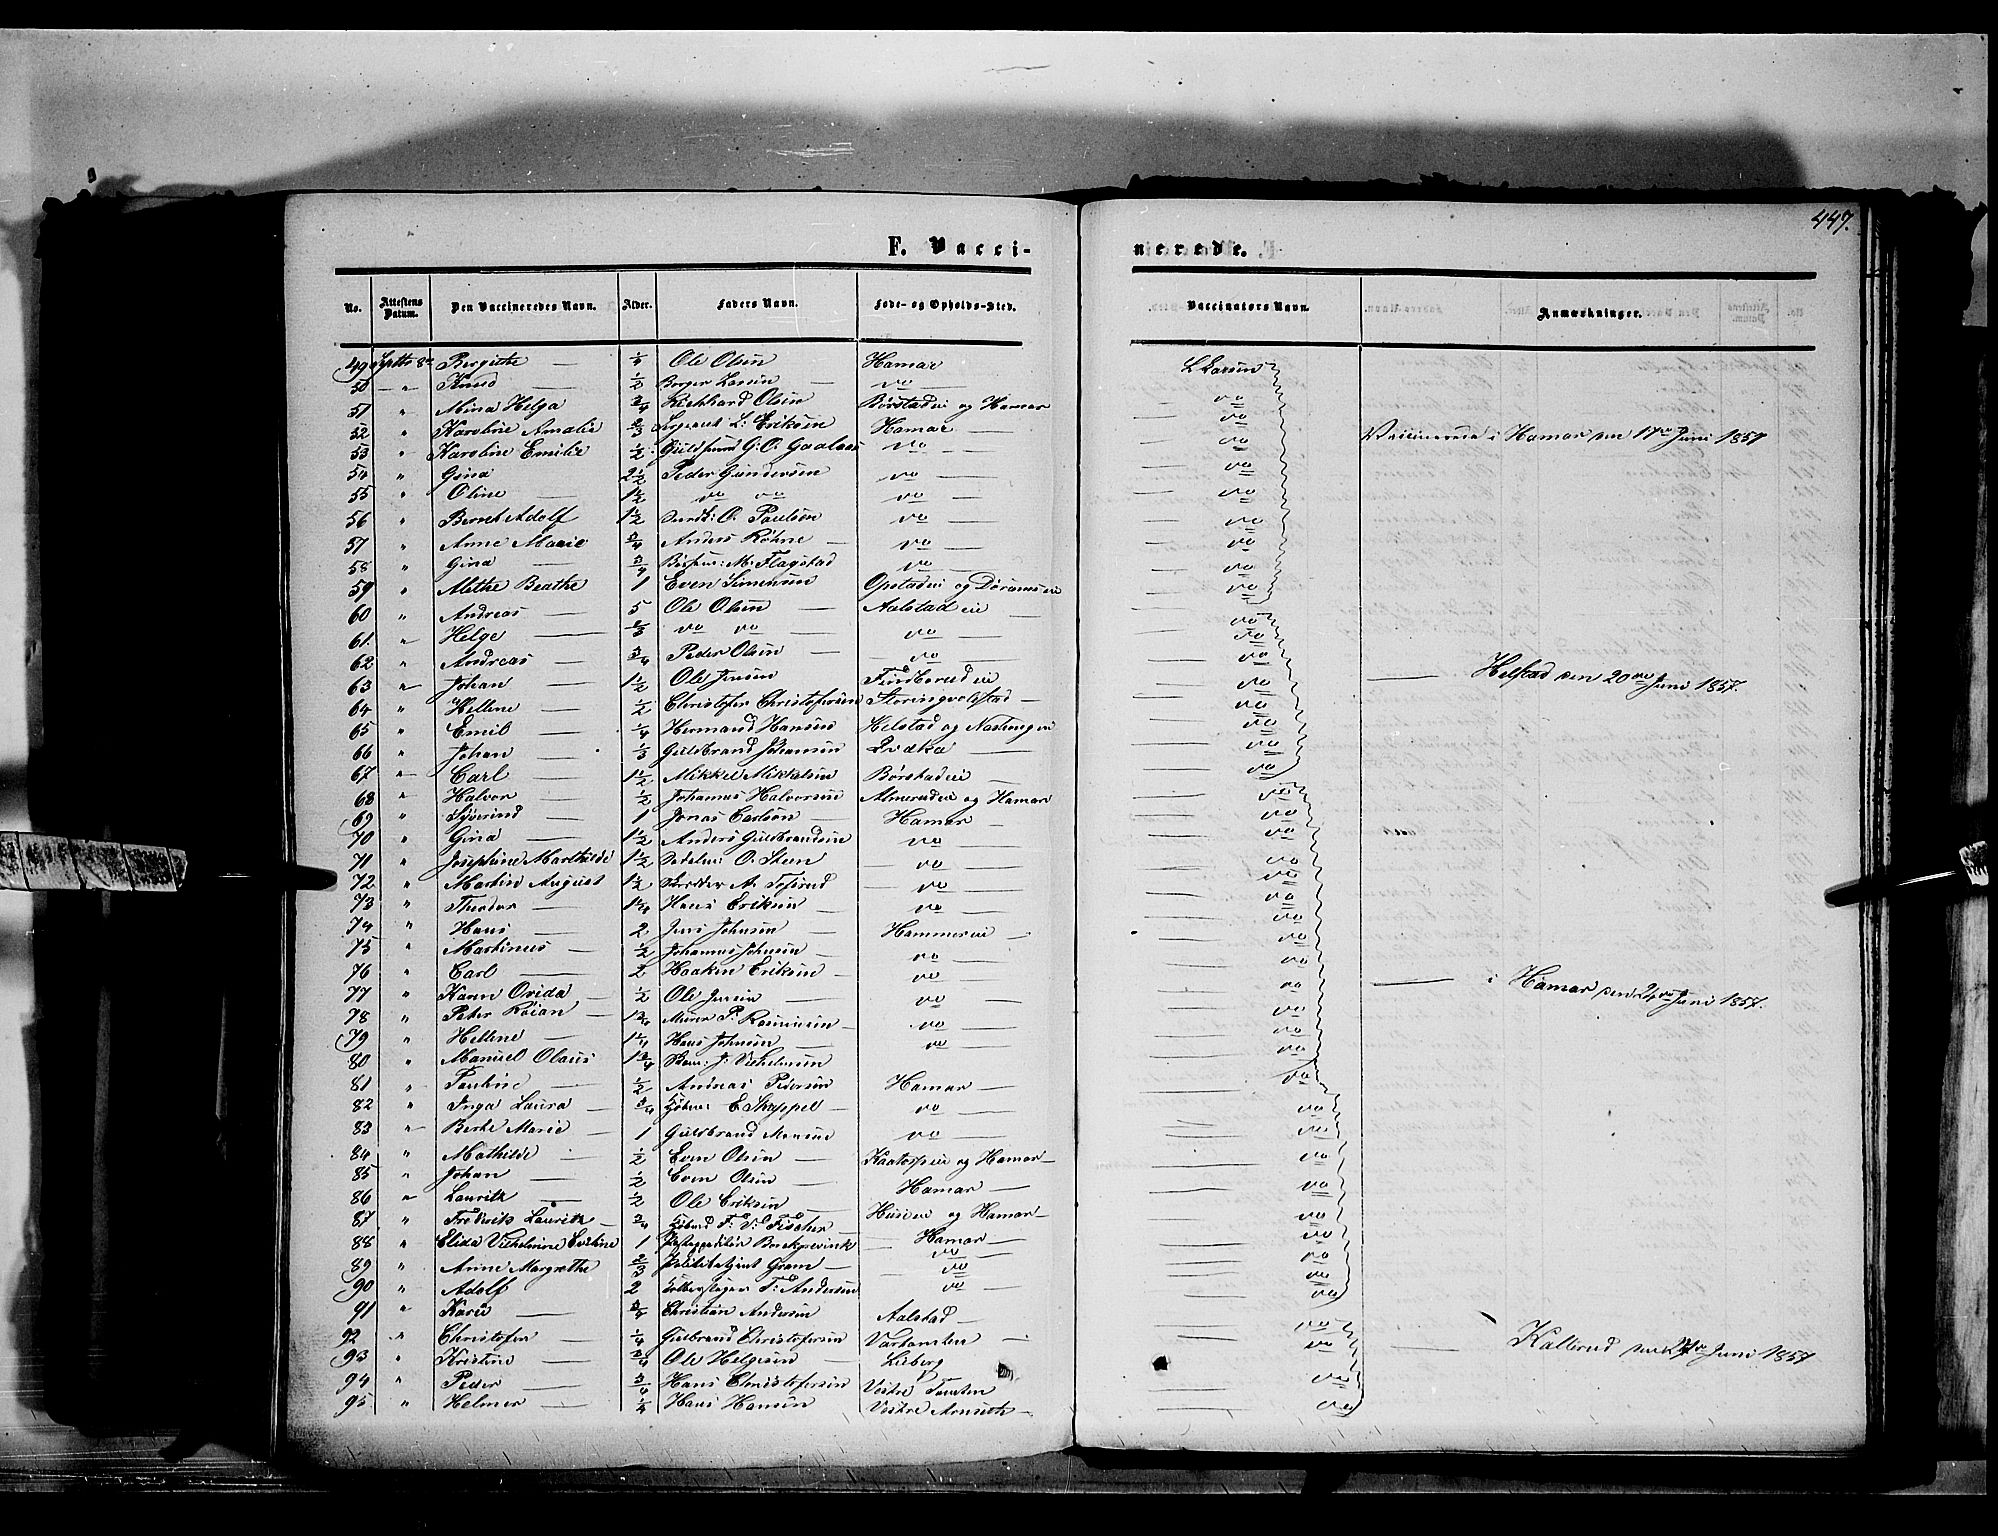 447.
F. Vacci-
nerede.
No. Attestens Datum. Den Vaccineredes Navn. Alder. Faders Navn. Føde- og Opholds-Sted. Vaccinators Navn. Anmærkninger.
49 Septbr 8de Bergithe — 1/4 Ole Olsen Hamar L Larsen
50 — " — Knud — 1/2 Borger Larsen — do —
51 " Mina Helga 3/4 Richhard Olsen Børstadeie og Hamar do
52 " Karoline Amalie 2/3 Sergeant L: Eriksen Hamar — do
53 " Karoline Emilie 1/2 Guldsmed G. O. Gaalaas do Vaccinerede i Hamar den 17de Juni 1857
54 " Gina 2 1/2 Peder Gundersen do — do
55 " Oline — 1 1/2 do do do — do
56 " Bernt Adolf 1 1/2 O. Paulsen do — do
57 " Anne Marie 3/4 Anders Røhne — do — do
58 " Gina — 3/4 M. Flagstad do — do
59 " Mithe Beathe 1 Even Simensen Opstadeie og do
60 " Andreas — 5 Ole Olsen — Aalstad eie — do
61. " Helge — 2/3 do do — do — do
62 " Andreas — 3/4 Peder Olsen — do — do
63 " Johan — 1 1/2 Ole Jensen Findborud eie do — Helstad den 20de Juni 1857.
64 " Hellene — 1/2 Christofer Christofersen Storingvolstad — do
65 " Emil — 1/4 Hermand Hansen Helstad og do
66 " Johan — 1/3 Guldbrand Johansen — do
67 " Carl — 1 1/2 Mikkel Mikkelsen Børstadeie — do
68 " Halvor — 1/2 Johannes Halvorsen Almerudeie og Hamar do
69 " Syverind — 1 Jonas Carlsen Hamar — do
70 " Gina — 1 1/2 Anders Guldbrandsen do do
71 " Josephine Marthilde 1 1/2 O. Steen — do — do
72 " Martin August 1 1/2 A. — do — do
73 " Theodor — Hans Eriksen — do — do
74 " Hans — 2 Jens Johnsen — Hammereie — do
75 " Martinus — 1/2 Johannes Johnsen do — do
76 " Carl — 1/2 Haaken Eriksen — do do
77 " Karen Ovida — 1/2 Ole Jensen — do — do — i Hamar den 24de Juni 1857.
78 " Peter — Murer P. Rasmusen — do — do
79 " Hellene — 1 1/4 Hans Johnsen — do — do
80 " Manuel Olaus 1 3/4 J. Vilhelmsen do
81 " Pauline — 1/2 Andreas Pedersen Hamar — do
82 " Inga Laura — 3/4 E Skappel — do — do
83 " Berthe Marie — 1 Guldbrand Monsen do — do
84 " Mathilde — 1/2 Even Olsen — Kaatorpeie og Hamar — do
85 " Johan — 1/2 Even Olsen — Hamar — do
86 " Lauritz — 1/2 Ole Eriksen — Huseeie og Hamar — do
87 " Frederik Lauritz — 3/4 F. V. Fischer — Hamar — do
88 " Elida Vilhelmine Eveline 1 Borchgrevink do do
89 " Anne Margrethe 2/3 Gram — do do
90 " Adolf — 2 T: Andersen do do
91 " Kari — 3/4 Christian Andersen Aalstad — do
92 " Christofer — 1/4 Gulbrand Christofersen — do
93 " Kristine — 3/4 Ole Helgesen — Lieberg do — Kallerud den 27de Juni 1857
94 " Peder — 3/4 Hans Christofersen Vestre do
95 " Helmer — 1/4 Hans Hansen Vestre — do